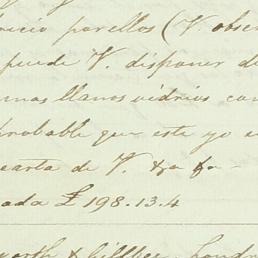 vicio por ellos (V. obser
puede V. disponer de
mas llanos vidrios con
probable que este yo en
carta de V. &a &a -
ada £ 198.13.4
worth & Gillbee - Londr